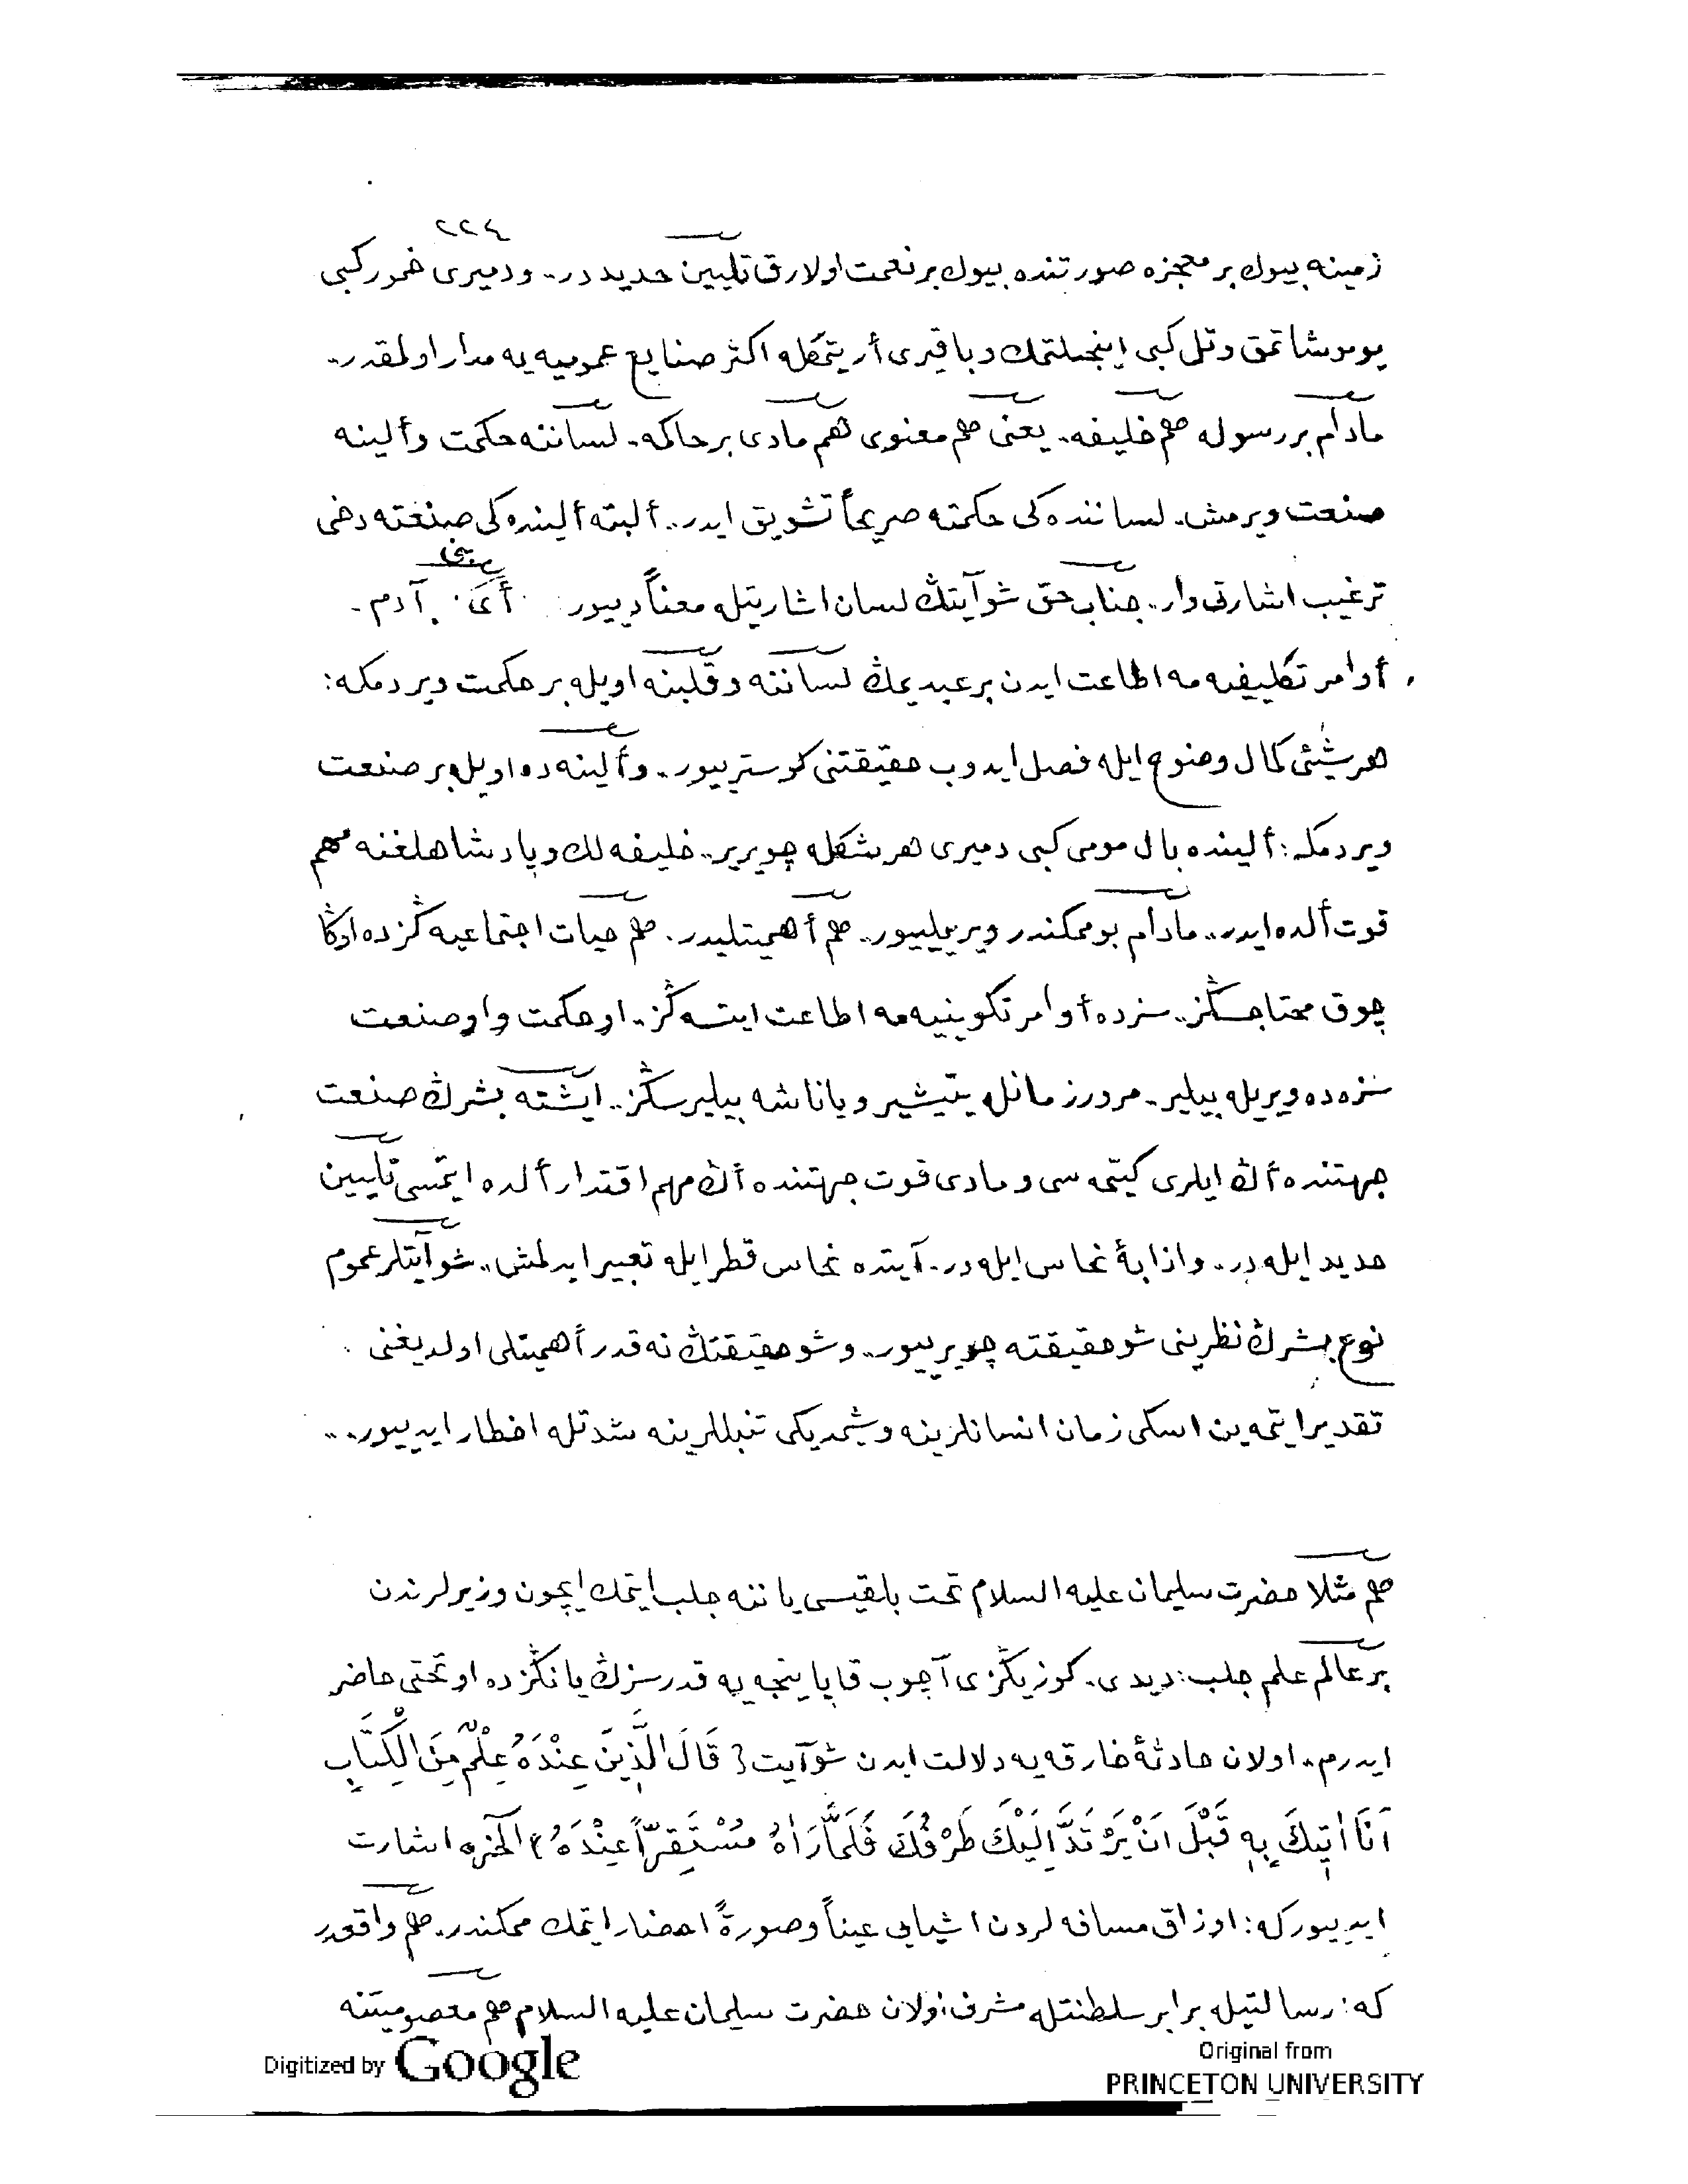 ٢٢٤
زمينه بيوك بر معجزه صورتنده بيوك بر نعمت اولارق تليين حديددر.. ودميرى خمور كبى
يوموشاتمق وتل كبى اينجيلتمك وباقيرى أريتمكله اكثر صنايع عموميه يه مدار اولمقدر..
مادام بر رسوله هم خليفه. يعنى هم معنوى هم مادى بر حاكمه. لساننه حكمت وألينه
صنعت ويرمش. لساننده كى حكمته صريحاً تشويق ايدر.. ألبته ألينده كى صنعته دخى
ترغيب اشارتى وار.. جناب حق شو آيتڭ لسان اشارتيله معناً دييور: أى بنى آدم.
أوامر تكليفيه مه اطاعت ايدن بر عبديمڭ لساننه وقلبنه اويله بر حكمت ويردمكه:
هر شيئى كمال وضوح ايله فصل ايدوب حقيقتنى كوستريور.. وألينه ده اويله بر صنعت
ويردمكه: ألينده بال مومى كبى دميرى هر شكله چويرير.. خليفه لك وپادشاهلغنه مهم
قوت ألده ايدر.. مادام بو ممكندر ويريلييور.. هم أهميتليدر. هم حيات اجتماعيه ڭزده اوڭا
چوق محتاجسڭز.. سزده أوامر تكوينيه مه اطاعت ايتسه ڭز.. او حكمت واو صنعت
سزه ده ويريله بيلير. مرور زمانله يتيشير وياناشه بيليرسڭز.. ايشته بشرڭ صنعت
جهتنده أڭ ايلرى كيتمه سى ومادى قوت جهتنده أڭ مهم اقتدار ألده ايتمسى تليين
حديد ايله در.. واذابهٔ نحاس ايله در. آيتده نحاس قطر ايله تعبير ايدلمش.. شو آيتلر عموم
نوع بشرڭ نظرينى شو حقيقته چويرييور.. وشو حقيقتڭ نه قدر أهميتلى اولديغنى
تقدير ايتمه ين اسكى زمان انسانلرينه وشيمديكى تنبللرينه شدتله اخطار ايدييور..
هم مثلا حضرت سليمان عليه السلام تخت بلقيسى ياننه جلب ايتمك ايچون وزيرلرندن
بر عالم علم جلب: ديدى. كوزيڭزى آچوب قاپاينجه يه قدر سزڭ يانڭزده او تختى حاضر
ايدرم.. اولان حادثهٔ خارقه يه دلالت ايدن شو آيت { قَالَ الَّذِينَ عِنْدَهُ عِلْمٌ مِنَ الْكِتَابِ
اَنَا اٰتِيكَ بِهِ قَبْلَ اَنْ يَرْتَدَّ اِلَيْكَ طَرْفُكَ فَلَمَّا رَاٰهُ مُسْتَقِرّاً عِنْدَهُ } الخزه اشارت
ايدييوركه: اوزاق مسافه لردن اشيايى عيناً وصورةً احضار ايتمك ممكندر. هم واقعدر
كه: رسالتيله برابر سلطنتله مشرف اولان حضرت سليمان عليه السلام هم معصوميتنه
Digitized by Google
Original from
PRINCETON UNIVERSITY